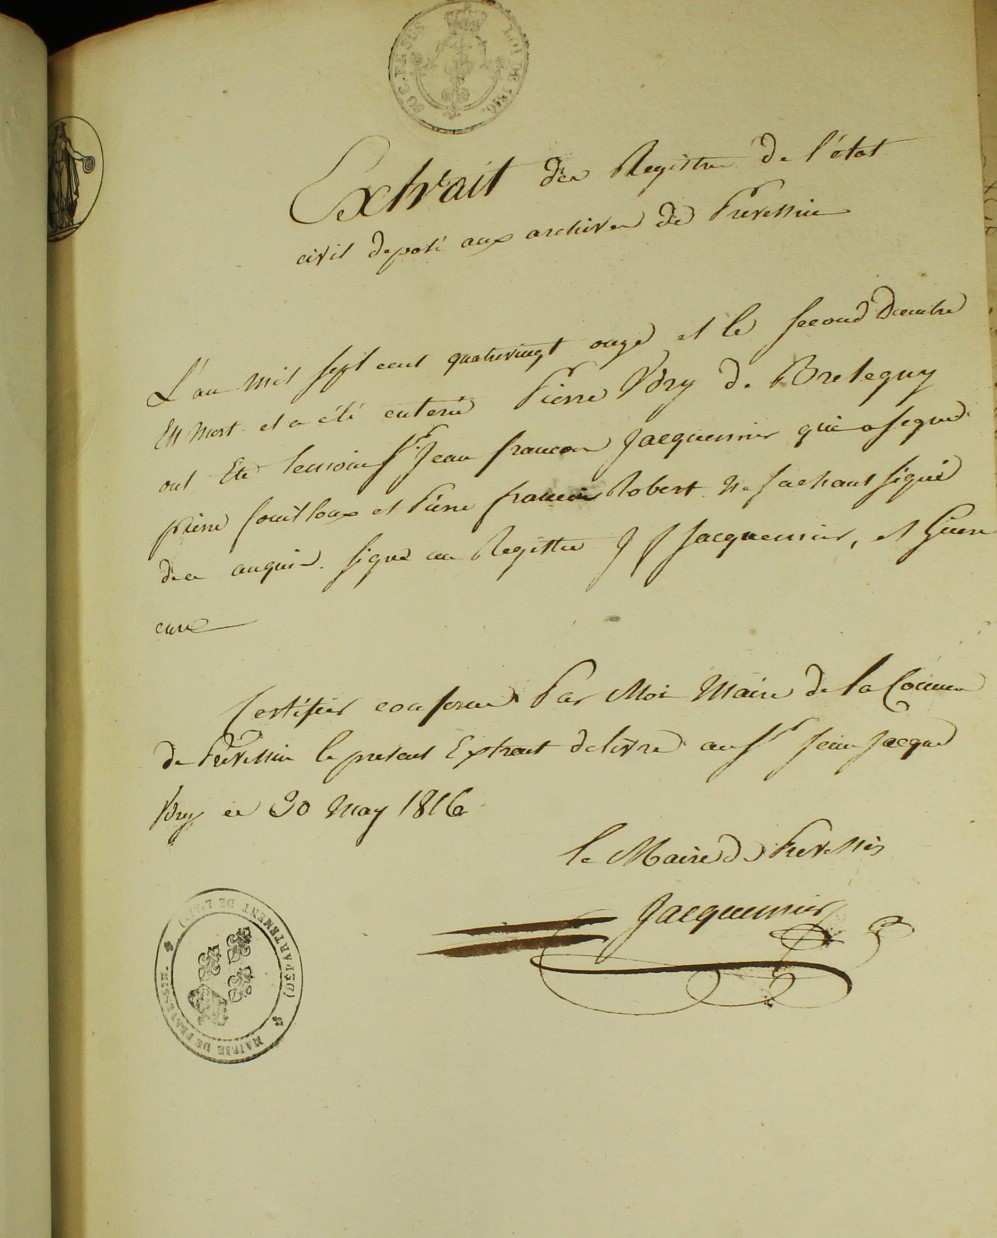 LOI DE 1816.
Extrait des Registre de l'état
civil deposé aux archives de Prevessin
L'an Mil sept cent quatrevingt onze et le second Decembre
Est Mort et a été enterré Pierre Bry de Bretegny
ont Eté temoins Sr. Jean francois Jacquemier qui a signe
pierre fouilloux et Pierre francois Robert Ne sachant signé
de ce enquis. signé au Registre J f Jacquemier, et
curé
Certifier conforme Par Moi Maire de la Commun
de Prevessin le present Extrait delivré au Sr. Jean Jacque
Bry ce 20 May 1816
le Maire de Prevessin
Jacquemier
MAIRIE DE PREVESSIN. DÉPARTEMENT DE L'AIN